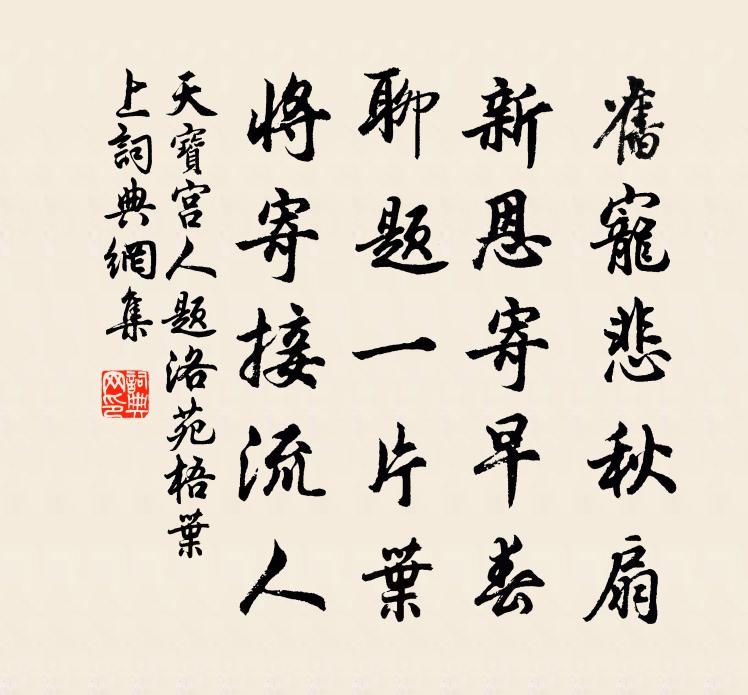 舊寵悲秋扇
新恩寄早春
聊题一片葉
將寄接流人
天寶宮人题洛苑梧葉
上詞典網集
詞典
网印